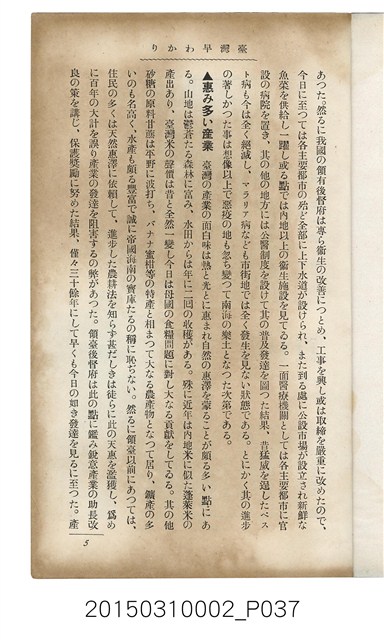 臺灣早わかり
あつた。然るに我國の領有後督府は專ら衞生の改善につとめ、工事を興し或は取締を嚴重に改めたので、
今日に至つては各主要都市の殆ど全部に上下水道が設けられ、また到る處に公設市場が設立され新鮮な
魚菜を供給し一躍或る點では内地以上の衞生施設を見てゐる。一面醫療機關としては各主要都市に官
設の病院を置き、其の他の地方には公醫制度を設けて其の普及發達を圖つた結果、昔猛威を逞したペス
ト病も今は全く絕滅し、マラリア病なども市街地では全く發生を見ない狀態である。とにかく其の進步
の著しかつた事は想像以上で惡疫の地も忽ち變つて南海の樂土となつた次第である。
▲惠み多い產業 臺灣の產業の面白味は熱と光とに惠まれ自然の惠澤を蒙ることが頗る多い點にあ
る。山地は鬱蒼たる森林に富み、水田からは年に二囘の收穫がある。殊に近年は内地米に似た蓬萊米の
產出あり、臺灣米の聲價は昔と全然一變し今日は母國の食糧問題に對し大なる貢獻をしてゐる。其の他
砂糖の原料甘蔗は平野に波打ち、バナナ蜜柑等の特產と相まつて大なる農產物となつて居り、鑛產の多
いのも名高く、水產も頗る豐富で誠に帝國海南の寶庫たるの稱に恥ぢない。然るに領臺以前にあつては、
住民の多くは天然惠澤に依賴して、進步した農耕法を知らず甚だしきは徒らに此の天惠を濫獲し、爲め
に百年の大計を誤り產業の發達を阻害するの弊があつた。領臺後督府は此の點に鑑み銳意產業の助長改
良の策を講じ、保護奬勵に努めた結果、僅々三十餘年にして早くも今日の如き發達を見るに至つた。產
5
20150310002_P037